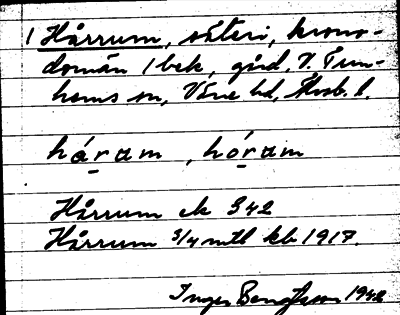 1 Hårrum, säteri, krono-
domän 1 bek, gård, V. Tun-
hems sn, Väne hd, Älvsb. l.
háram, hóram
Hårrum ek 342
Hårrum 3/4 mtl kb 1917.
Inger Bengtsson 1942